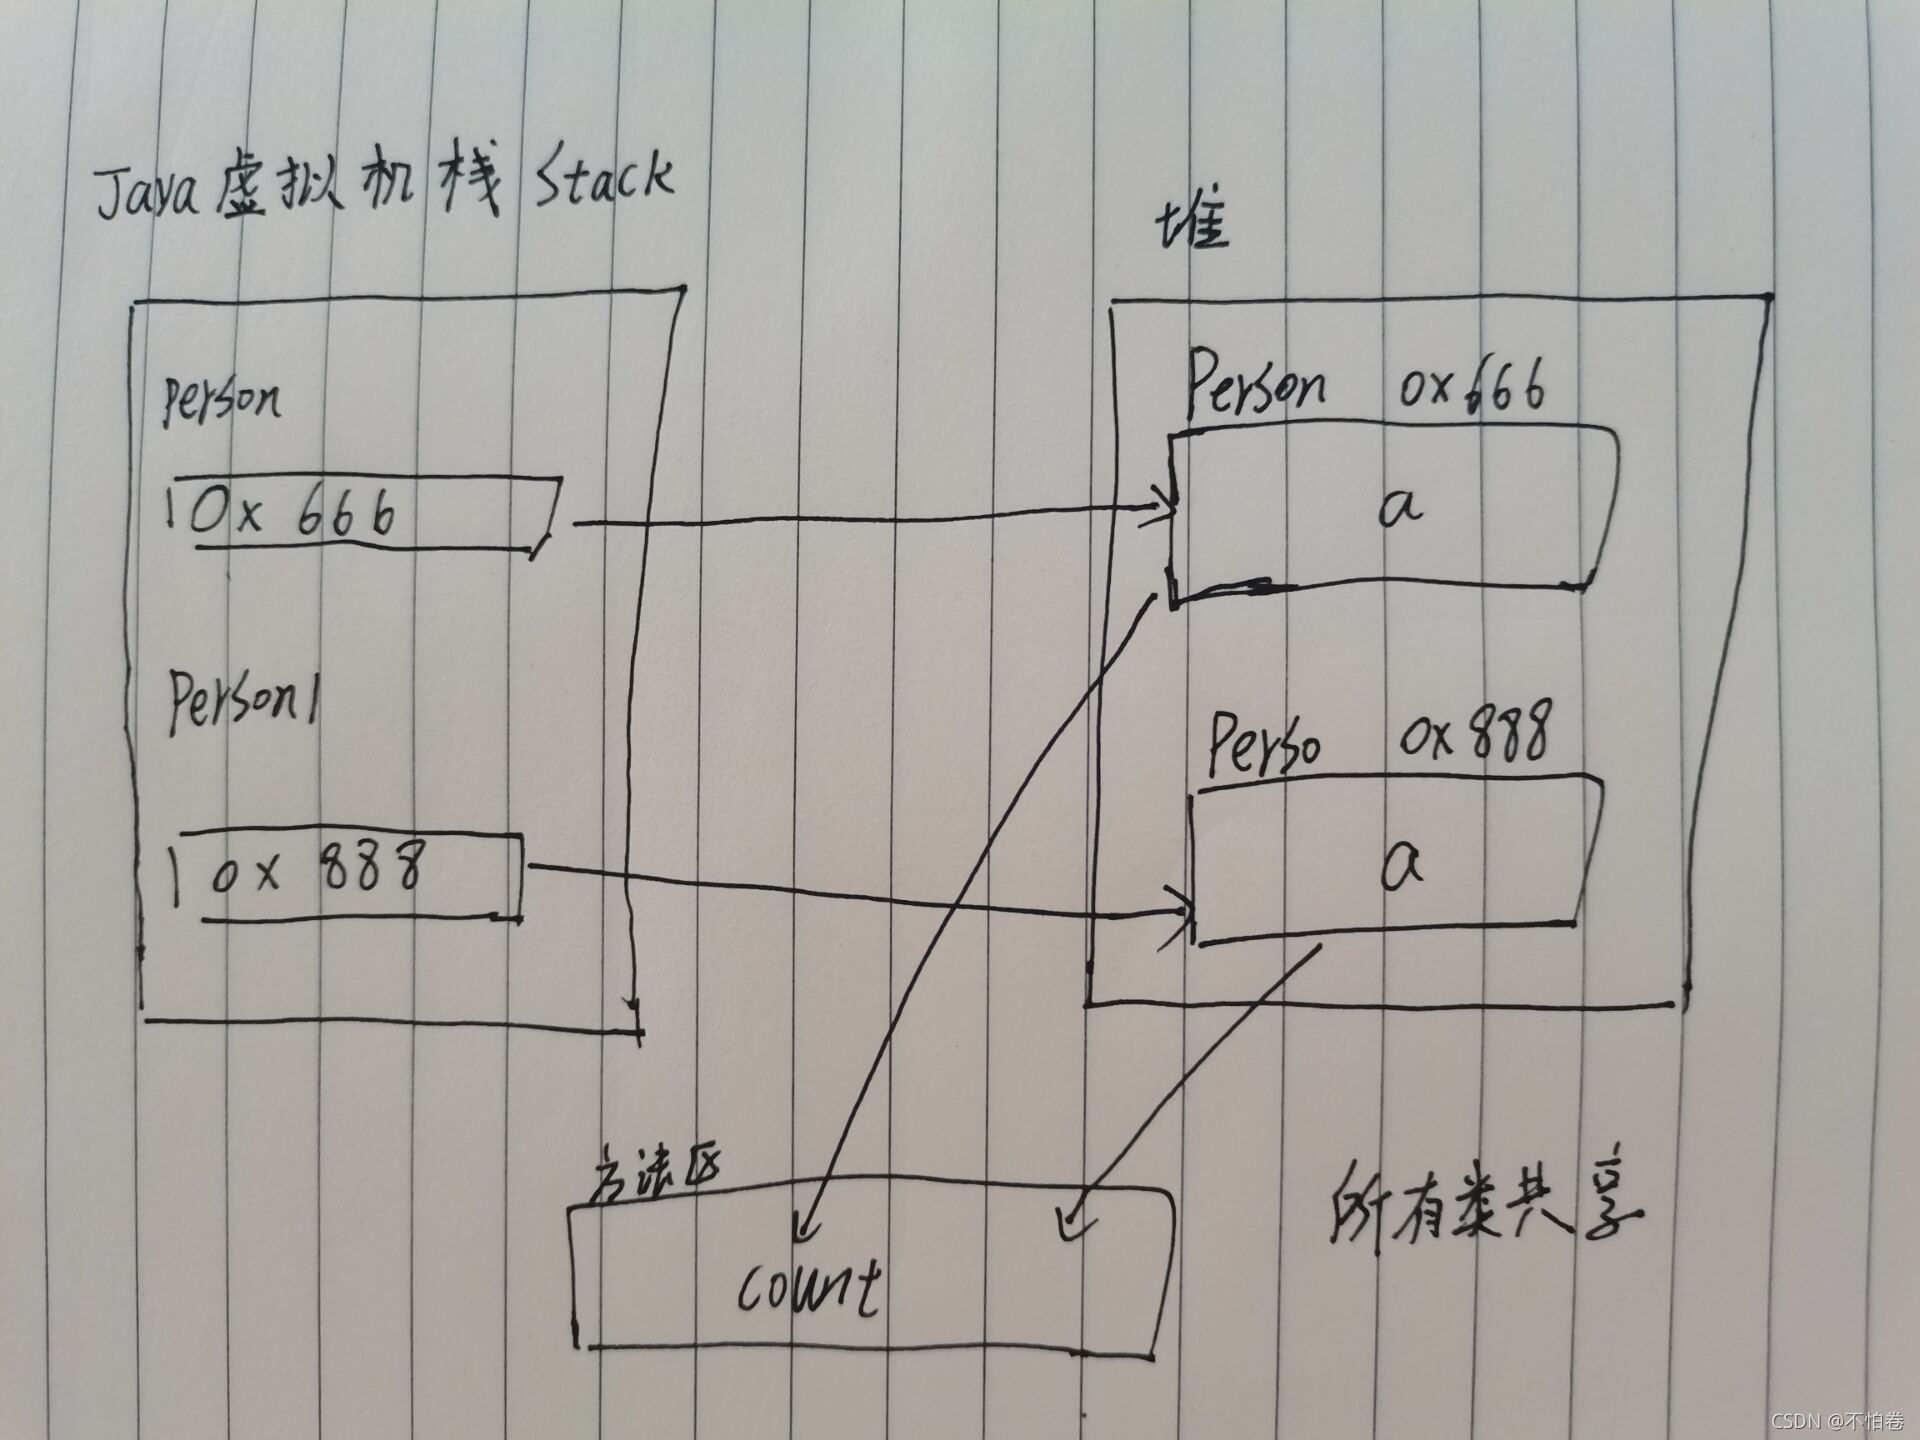 Java虚拟机栈 Stack
堆
Person
0x 666
Person 0x666
a
Person1
0x 888
Perso 0x888
a
方法区
count
所有类共享
CSDN @不怕卷